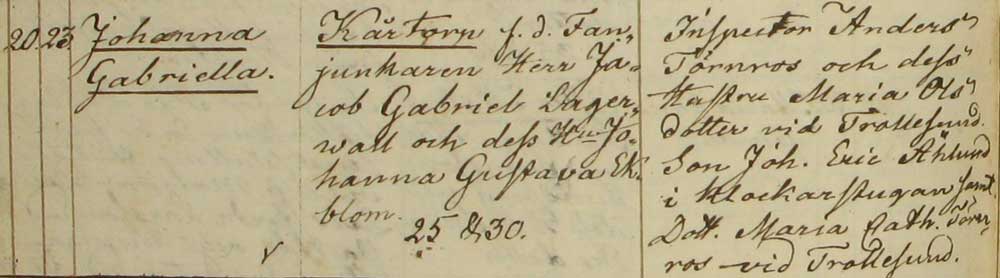 20. 23. Johanna
Gabriella.
Kårtorp f. d. Fan-
junkaren Herr Ja-
cob Gabriel Lager-
wall och dess Hu Jo-
hanna Gustava Ek-
blom.
25 & 30.
Inspector Anders
Törnros och dess
Hustru Maria Ols-
dotter vid Trollesund.
Son Joh. Eric Åhlund
i Klockarstugan samt
Dott. Maria Cath. Törn-
ros vid Trollesund.